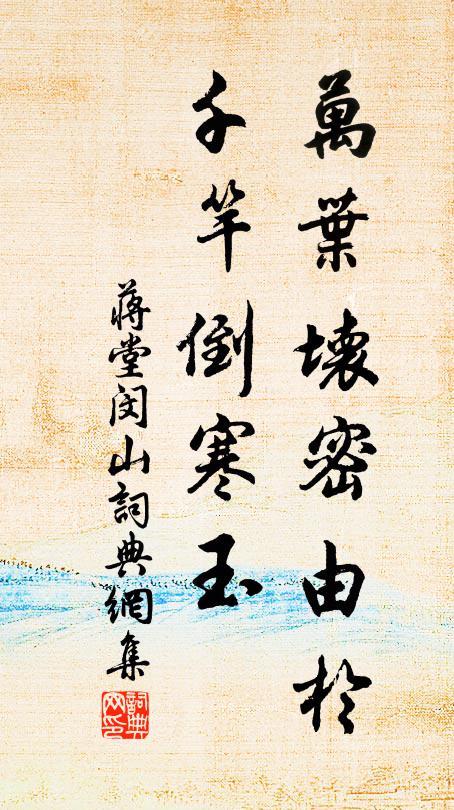 萬葉壞密由於
千竿倒寒玉
蔣堂閔山詞典網集
詞典網印